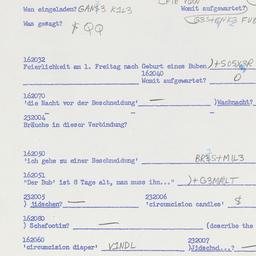 Wen eingeladen? GAN$3 K1L3 Womit aufgewartet?)
Was gesagt? $ QQ
162032
Feierlichkeit am 1. Freitag nach Geburt eines Buben )+SO5X3R
162040
Womit aufgewartet? 0
162070
'die Nacht vor der Beschneidung' — )Wachnacht?
232004
Bräuche in dieser Verbindung?
162050
'ich gehe zu einer Beschneidung' BR&S+M1L3
162051
"Der Bub' ist 8 Tage alt, man muss ihn..." )+G3MALT
232005 232006
) Jüdschen? — 'circumcision candles' $
162080
) Schefootim? — (describe the
162060 232007
'circumcision diaper' VINDL )Jüdschd...? —